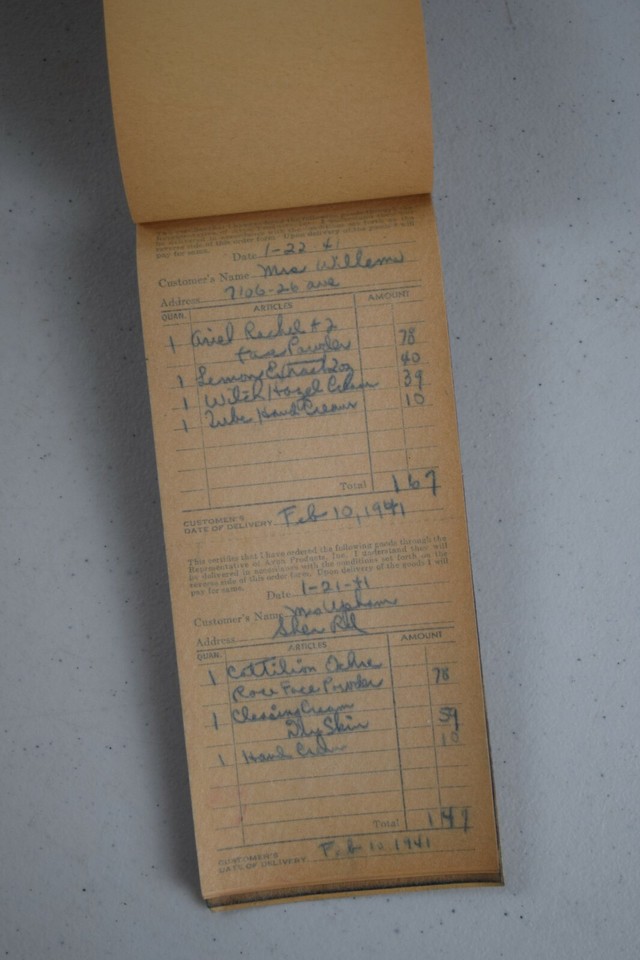 reverse side of this order form. Upon delivery of the goods I will
pay for same.
Date 1-22-41
Customer's Name Mrs Willems
Address 7106-26 ave
QUAN. ARTICLES AMOUNT
1 Ariel Rachel #2
Face Powder 78
1 Lemon Extract 2oz 40
1 Witch Hazel Cream 39
1 Tube Hand Cream 10
Total 167
CUSTOMER'S
DATE OF DELIVERY Feb 10, 1941
This certifies that I have ordered the following goods through the
Representative of Avon Products, Inc. I understand they will
be delivered in accordance with the conditions set forth on the
reverse side of this order form. Upon delivery of the goods I will
pay for same.
Date 1-21-41
Customer's Name Mrs Upham
Address Sher Rd
QUAN. ARTICLES AMOUNT
1 Cottilion Ochre
Rose Face Powder 78
1 Cleasing Cream
Dry Skin 59
1 Hand Cream 10
Total 147
CUSTOMER'S
DATE OF DELIVERY Feb 10 1941